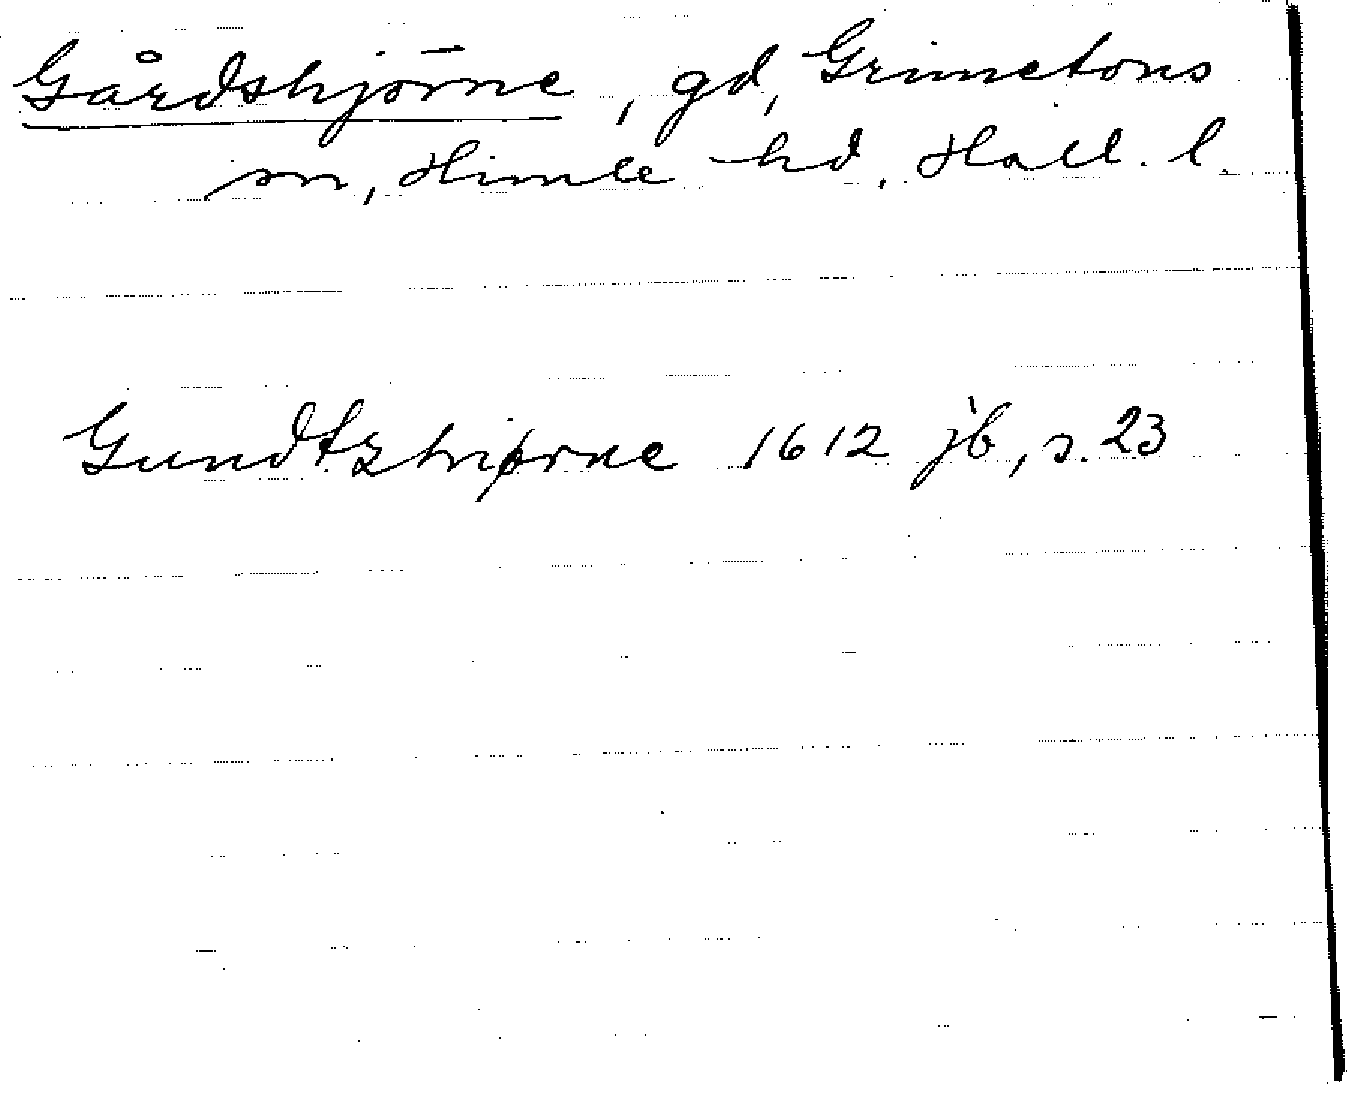 Gårdshjörne, gd, Grimetons
sn, Himle hd. Hall. l.
Gundtzhiørne 1612 jb, s. 23